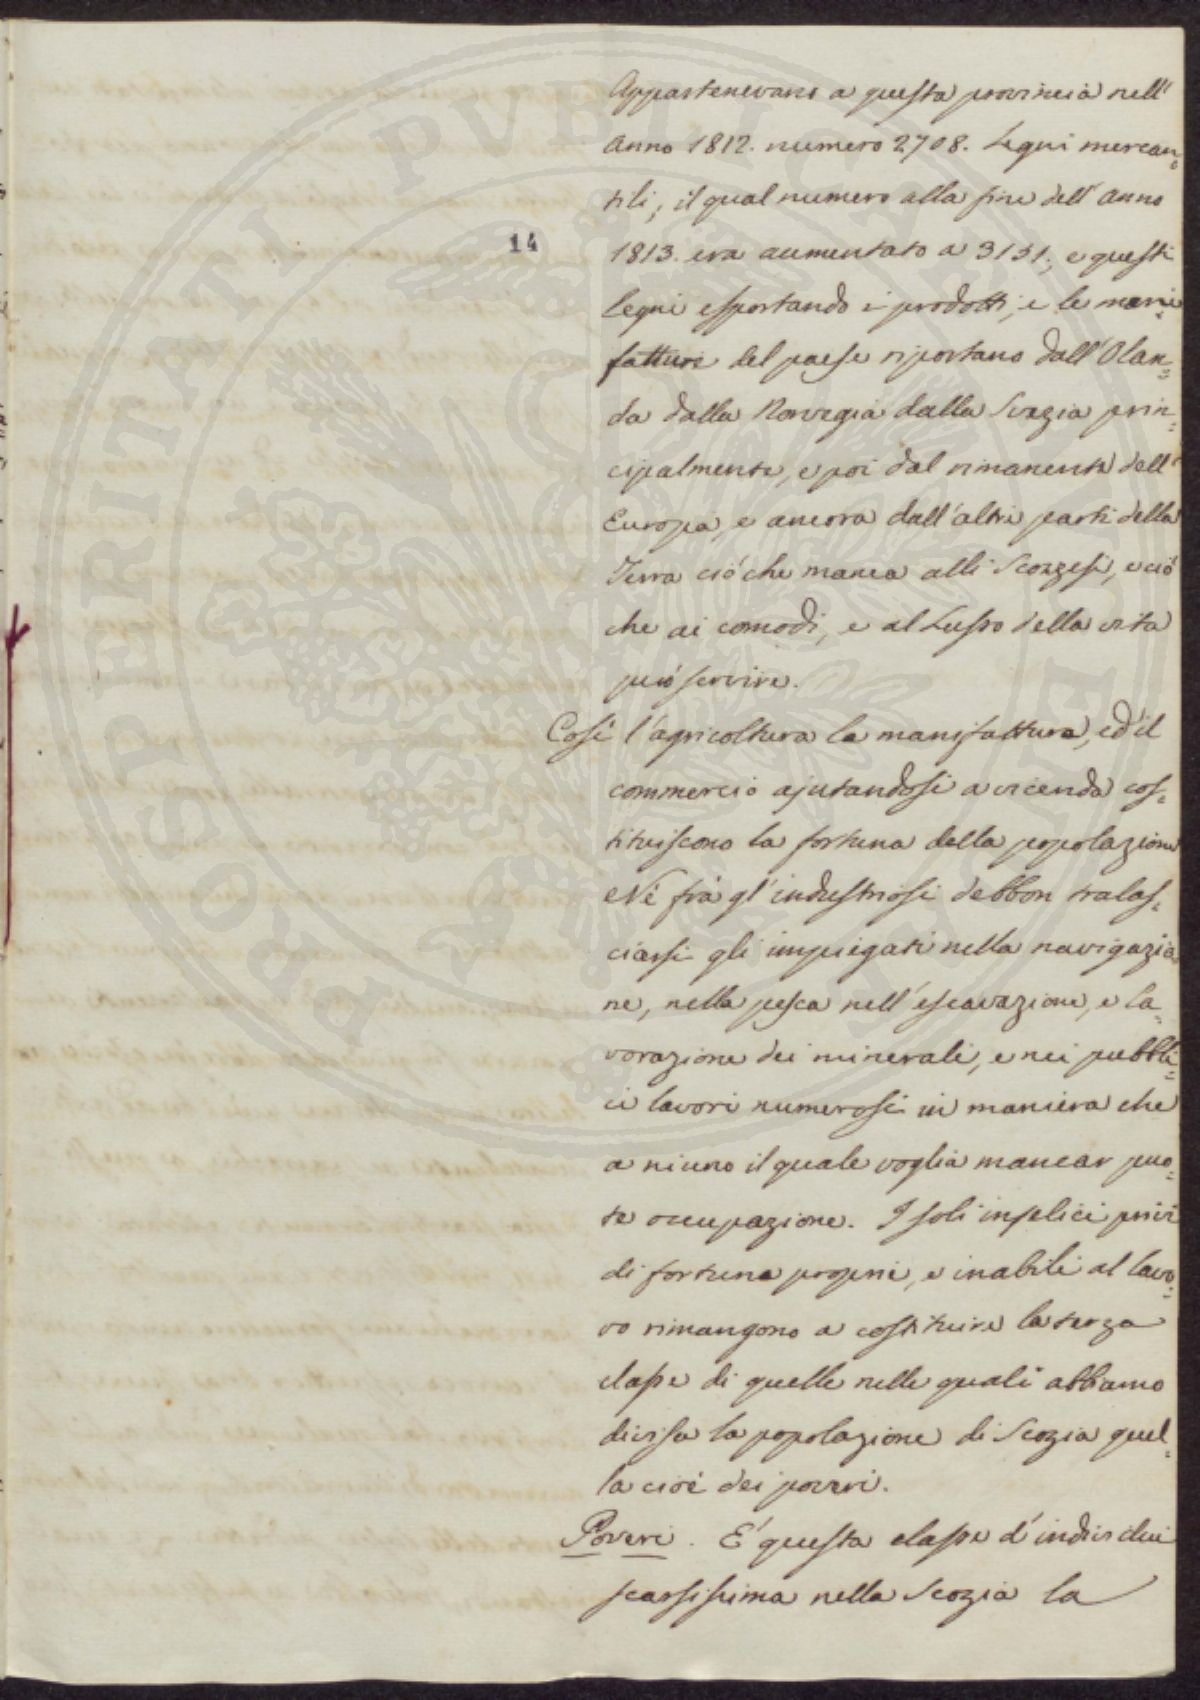 Appartenevano a questa provincia nell'
Anno 1812. numero 2708. Legni mercan=
tili, il qual numero alla fine dell'anno
14
1813. era aumentato a 3151; e questi
legni esportando i prodotti, e le mani=
fatture del paese riportano dall'Olan=
da dalla Norvegia dalla Svezia prin=
cipalmente, e poi dal rimanente dell'
Europa, e ancora dall'altre parti della
Terra ciò che manca alli Scozzesi, e ciò
che ai comodi, e al Lusso della vita
può servire.
Così l'agricoltura la manifattura, ed il
commercio ajutandosi a vicenda cos=
tituiscono la fortuna della popolazione
Nè frà gl'industriosi debbon tralas=
ciarsi gli impiegati nella navigazio
ne, nella pesca nell'escavazione, e la=
vorazione dei minerali, e nei pubbli=
ci lavori numerosi in maniera che
a niuno il quale voglia mancar puo=
te occupazione. I soli infelici privi
di fortuna propria, e inabili al lavo=
ro rimangono a costituire la terza
classe di quelle nelle quali abbiamo
divisa la popolazione di Scozia quel=
la cioè dei poveri.
Poveri. È questa classe d'individui
scarsissima nella Scozia la
PROSPERITATI PVBLICAE